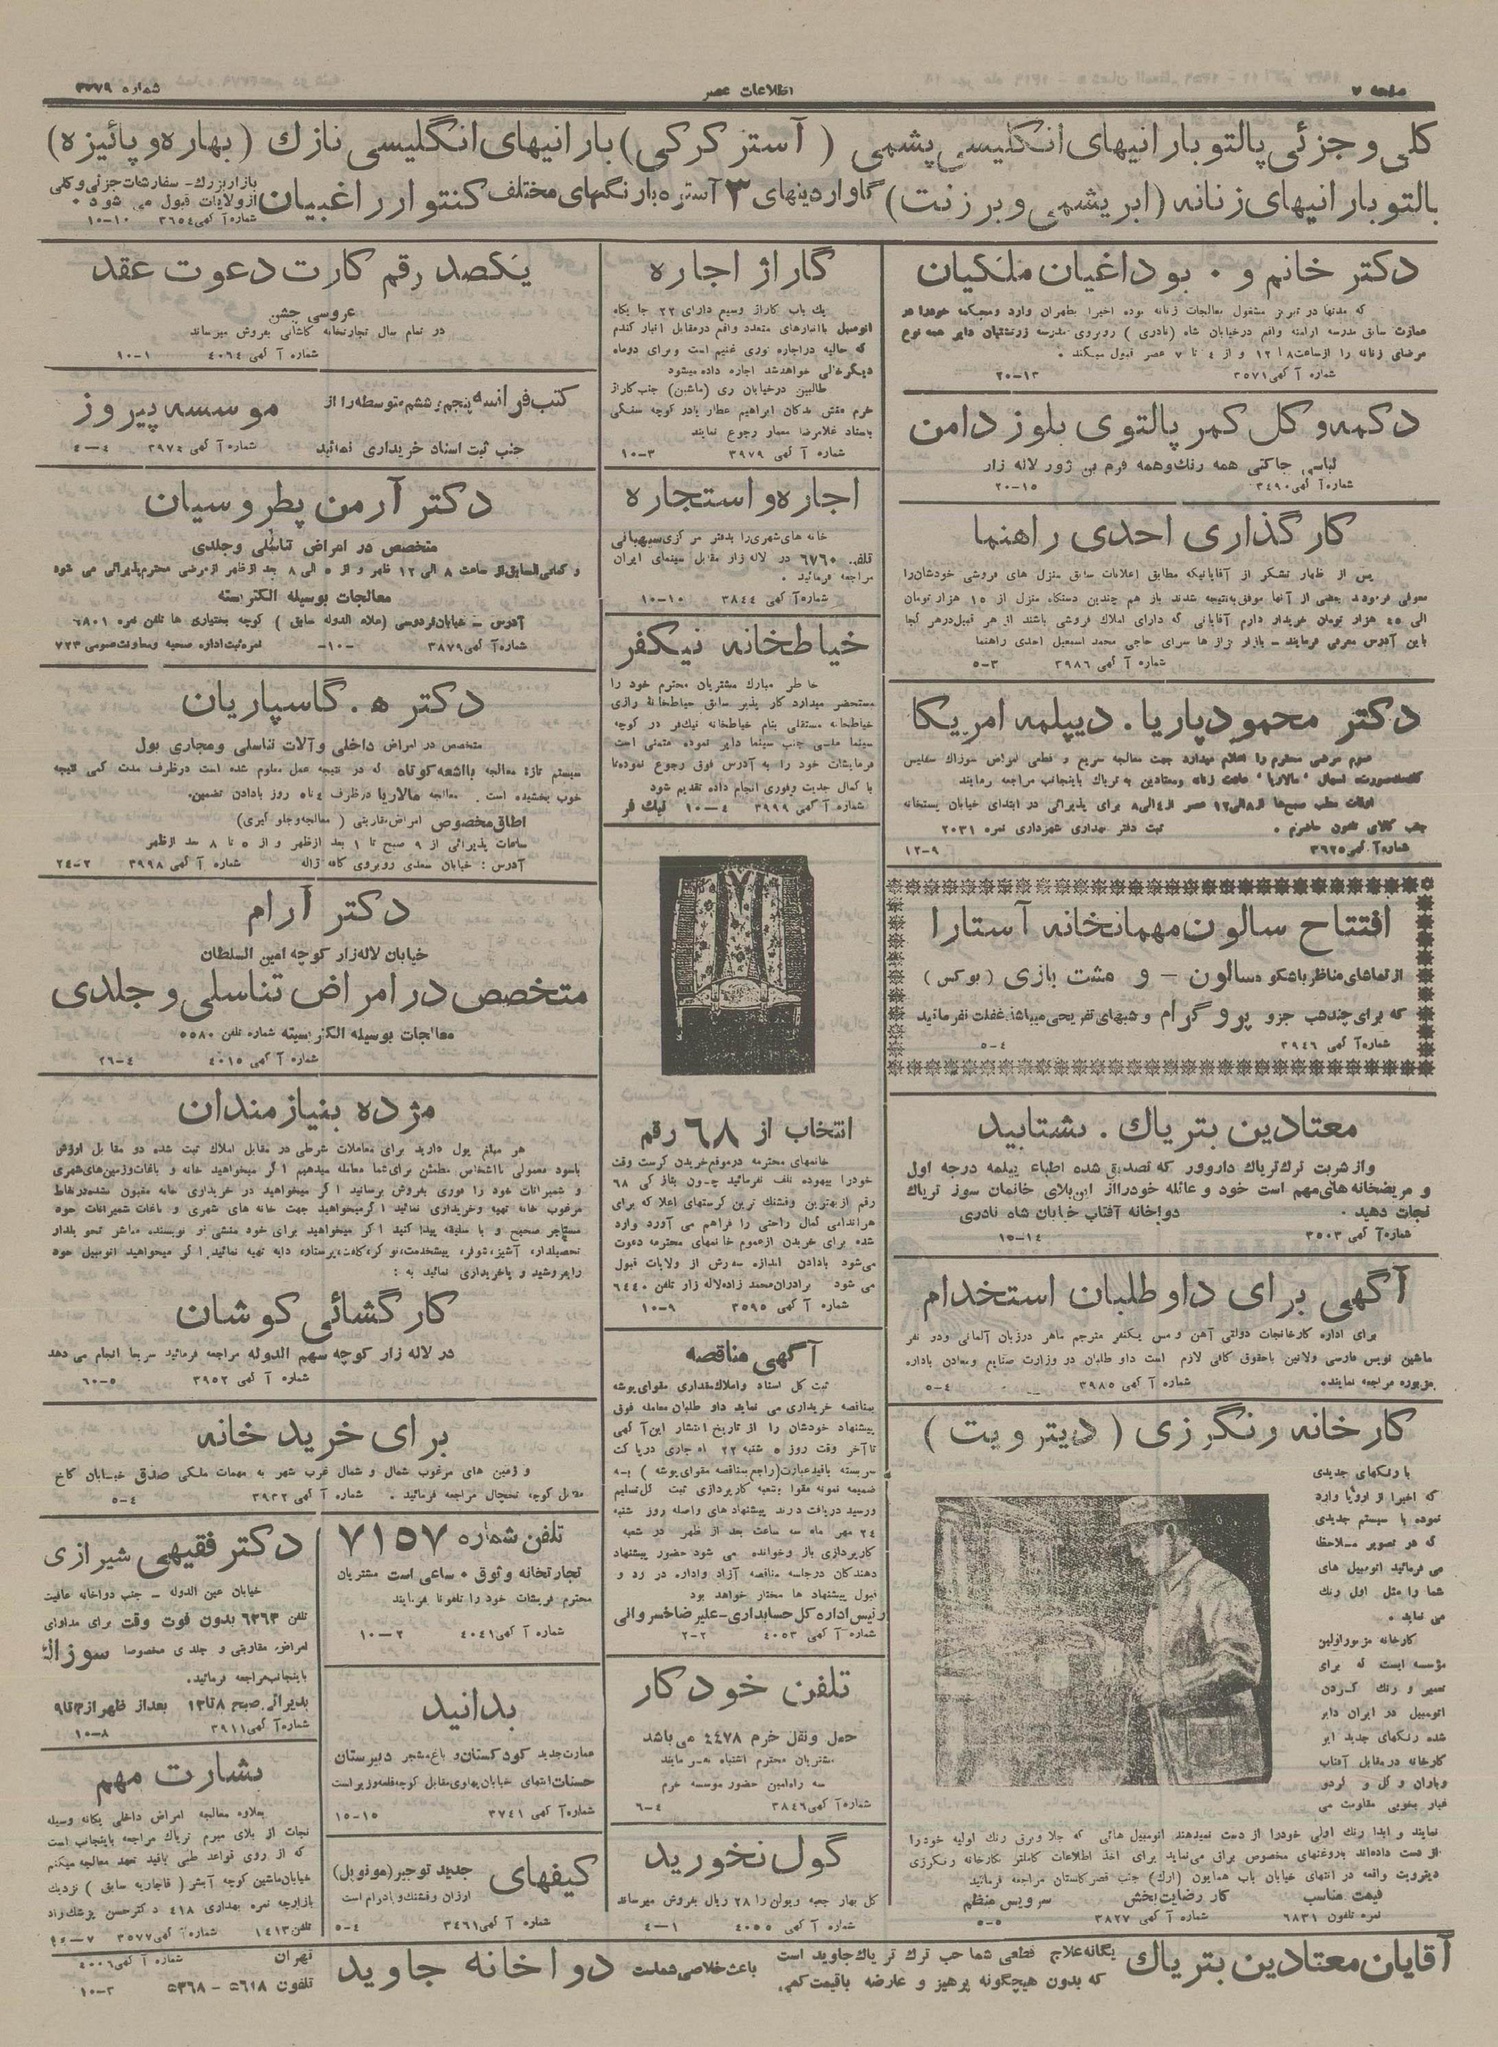 صفحه ۷
اطلاعات عصر
شماره ۳۲۷۹
کلی و جزئی پالتو بارانیهای انگلیسی پشمی (آستر کرکی) بارانیهای انگلیسی نازك (بهاره و پائیزه)
پالتو بارانیهای زنانه (ابریشمی و برزنت) گاواردینهای ۳ آستره بارنگهای مختلف کنتوار راغبیان
بازار بزرك - سفارشات جزئی و کلی
از ولایات قبول می شود ۰
شماره آگهی ۳۶۵٤ ۱۰-۱۰
دکتر خانم و ۰ بوداغیان ملکیان
که مدتها در تبریز مشغول معالجات زنانه بوده اخیرا بطهران وارد و محکمه خود را در
عمارت سابق مدرسه ارامنه واقع در خیابان شاه (نادری) روبروی مدرسه زرتشتیان دایر همه نوع
مرضای زنانه را از ساعت ۸ تا ۱۲ و از ٤ تا ۷ عصر قبول میکند ۰
شماره آگهی ۳۵۷۱ ۲۰-۱۳
دکمه و گل کمر پالتوی بلوز دامن
لباسی جاکتی همه رنك و همه فرم بن ژور لاله زار
شماره آگهی ۳٤۹۰ ۲۰-۱۵
کارگذاری احدی راهنما
پس از ظهار تشکر از آقایانیکه مطابق اعلانات سابق منزل های فروشی خودشان را
معرفی فرمودند بعضی از آنها موفق به نتیجه شدند باز هم چندین دستگاه منزل از ۱۵ هزار تومان
الی ٤۵ هزار تومان خریدار دارم آقایانی که دارای املاك فروشی باشند از هر قبیل در هر کجا
باین آدرس معرفی فرمایند - بازار بزازها سرای حاجی محمد اسمعیل احدی راهنما
شماره آگهی ۳۹۸۶ ۵-۳
دکتر محمود پاریا . دیپلمه امریکا
عموم مرضی محترم را اعلام میدارد جهت معالجه سریع و قطعی امراض سوزاك سفلیس
اوقات مطب صبحها از ۸ الی ۱۲ عصر از ٤ الی ۸ برای پذیرائی در ابتدای خیابان پستخانه
ثبت دفتر بهداری شهرداری نمره ۲۰۳۱
شماره آگهی ۳۶۲۵ ۱۲-۹
افتتاح سالون مهمانخانه آستارا
از تماشای مناظر باشکوه سالون - و مشت بازی (بوکس)
که برای چند شب جزو پروگرام و شبهای تفریحی میباشد غفلت نفرمائید
شماره آگهی ۳۹٤۶ ۵-٤
معتادین بتریاك . بشتابید
و از شربت ترك تریاك داروور که تصدیق شده اطباء دیپلمه درجه اول
و مریضخانه های مهم است خود و عائله خود را از این بلای خانمان سوز تریاك
نجات دهید ۰ دواخانه آفتاب خیابان شاه نادری
شماره آگهی ۳۵۰۳ ۱۵-۱٤
آگهی برای داوطلبان استخدام
برای اداره کارخانجات دولتی آهن و مس یکنفر مترجم ماهر در زبان آلمانی و دو نفر
ماشین نویس فارسی و لاتین با حقوق کافی لازم است داوطلبان در وزارت صنایع و معادن باداره
مزبوره مراجعه نمایند.
شماره آگهی ۳۹۸۵ ۵-٤
کارخانه رنگرزی (دیتروبت)
با رنگهای جدیدی
که اخیرا از اروپا وارد
نموده با سیستم جدیدی
که در تصویر ملاحظه
می فرمائید اتومبیل های
شما را مثل اول رنك
می نماید ۰
کارخانه مزبور اولین
مؤسسه ایست که برای
تعمیر و رنك کردن
اتومبیل در ایران دایر
شده رنگهای جدید این
کارخانه در مقابل آفتاب
و باران و گل و گرد و
غبار بخوبی مقاومت می
نمایند و ابدا رنك اولی خود را از دست نمیدهند اتومبیل هائی که جلا و برق رنك اولیه خود را
از دست داده اند بروغنهای مخصوص براق می نماید برای اخذ اطلاعات کاملتر بکارخانه رنگرزی
دیتروبت واقعه در انتهای خیابان باب همایون (ارك) جنب قصر گلستان مراجعه فرمائید
قیمت مناسب کار رضایت بخش سرویس منظم
نمره تلفون ۶۸۳۱ شماره آگهی ۳۸۲۷ ۵-۵
گاراژ اجاره
یك باب گاراژ وسیع دارای ۲۲ جایگاه
اتومبیل با انبارهای متعدد واقع در مقابل انبار گندم
که حالیه در اجاره نوری غنیم است و برای دو ماه
دیگر خالی خواهد شد اجاره داده میشود
طالبین در خیابان ری (ماشین) جنب گاراژ
خرم مقش بدکان ابراهیم عطار یا در کوچه سنگی
باستاد غلامرضا معمار رجوع نمایند
شماره آگهی ۳۹۷۹ ۱۰-۳
اجاره و استجاره
خانه های شهری را بدفتر مرکزی سپهبانی
تلفن ۶۷۶۰ در لاله زار مقابل سینمای ایران
مراجعه فرمائید ۰
شماره آگهی ۳۸٤٤ ۱۰-۱۰
خیاطخانه نیکفر
خاطر مبارك مشتریان محترم خود را
مستحضر میدارد کار پذیر سابق خیاطخانه رازی
خیاطخانه مستقلی بنام خیاطخانه نیك فر در کوچه
سینما ملی جنب سینما دایر نموده متمنی است
فرمایشات خود را به آدرس فوق رجوع نموده تا
با کمال جدیت و فوری انجام داده تقدیم شود
شماره آگهی ۳۹۹۹ ۱۰-٤ نیك فر
انتخاب از ۶۸ رقم
خانمهای محترمه در موقع خریدن کرست وقت
خود را بیهوده تلف نفرمائید چون بتازگی ۶۸
رقم از بهترین و قشنك ترین کرستهای اعلا که برای
هر اندامی کمال راحتی را فراهم می آورد وارد
شده برای خریدن از عموم خانمهای محترمه دعوت
می شود با دادن اندازه سفارش از ولایات قبول
می شود برادران محمدزاده لاله زار تلفن ۶٤٤۰
شماره آگهی ۳۵۹۵ ۱۰-۹
آگهی مناقصه
ثبت کل اسناد و املاك مقداری مقوای پوشه
بمناقصه خریداری می نماید داوطلبان معامله فوق
پیشنهاد خودشان را از تاریخ انتشار این آگهی
تا آخر وقت روز ۵ شنبه ۲۲ ماه جاری در پاکت
سربسته باقید عبارت (راجع بمناقصه مقوای پوشه) به
ضمیمه نمونه مقوا بشعبه کارپردازی ثبت کل تسلیم
و رسید دریافت دارند پیشنهاد های واصله روز شنبه
۲٤ مهر ماه سه ساعت بعد از ظهر در شعبه
کارپردازی باز و خوانده می شود حضور پیشنهاد
دهندگان در جلسه مناقصه آزاد و اداره در رد و
قبول پیشنهاد ها مختار خواهد بود
رئیس اداره کل حسابداری - علیرضا خسروانی
شماره آگهی ٤۰۵۳ ۲-۲
تلفن خودکار
حمل و نقل خرم ۲٤۷۸ می باشد
مشتریان محترم اشتباه نفرمایند
سه راه امین حضور موسسه خرم
شماره آگهی ۳۸٤۶ ۶-٤
گول نخورید
گل بهار جعبه و یولن را ۲۸ ریال بفروش میرساند
شماره آگهی ٤۰۵۵ ٤-۱
یکصد رقم کارت دعوت عقد
عروسی جشن
در تمام سال تجارتخانه کاشانی بفروش میرساند
شماره آگهی ٤۰۶٤ ۱۰-۱
کتب فرانسه پنجم و ششم متوسطه را از موسسه پیروز
جنب ثبت اسناد خریداری نمائید شماره آگهی ۳۹۷٤ ٤-٤
دکتر آرمن پطروسیان
متخصص در امراض تناسلی و جلدی
و کمافی السابق از ساعت ۸ الی ۱۲ ظهر و از ۵ الی ۸ بعد از ظهر از مرضی محترم پذیرائی می شود
معالجات بوسیله الکتریسته
آدرس - خیابان فردوسی (علاء الدوله سابق) کوچه بختیاری ها تلفن نمره ۶۸۰۱
شماره آگهی ۳۸۷۹ -۱۰- نمره ثبت اداره صحیه و معاونت عمومی ۷۲۳
دکتر ه . گاسپاریان
متخصص در امراض داخلی و آلات تناسلی و مجاری بول
سیستم تازه معالجه با اشعه کوتاه که در نتیجه عمل معلوم شده است در ظرف مدت کمی نتیجه
خوب بخشیده است . معالجه مالاریا در ظرف ٤ ماه روز با دادن تضمین.
اطاق مخصوص امراض مقاربتی (معالجه و جلوگیری)
ساعات پذیرائی از ۹ صبح تا ۱ بعد از ظهر و از ۵ تا ۸ بعد از ظهر
آدرس : خیابان سعدی روبروی کافه ژاله شماره آگهی ۳۹۹۸ ۲٤-۲
دکتر آرام
خیابان لاله زار کوچه امین السلطان
متخصص در امراض تناسلی و جلدی
معالجات بوسیله الکتریسیته شماره تلفن ۵۵۸۰
شماره آگهی ٤۰۱۵ ۲۶-٤
مژده بنیازمندان
هر مبلغ پول دارید برای معاملات شرطی در مقابل املاك ثبت شده دو مقابل ارزش
باسود معمولی با اشخاص مطمئن برای شما معامله میدهیم اگر میخواهید خانه و باغات و زمین های شهری
و شمیرانات خود را فوری بفروش برسانید اگر میخواهید در خریداری خانه مغبون نشده در نقاط
مرغوب خانه تهیه و خریداری نمائید اگر میخواهید جهت خانه های شهری و باغات شمیرانات خود
مستأجر صحیح و با سلیقه پیدا کنید اگر میخواهید برای خود منشی و نویسنده مباشر تحویلدار
تحصیلدار، آشپز، شوفر، پیشخدمت، نوکر، کلفت، پرستار، دایه تهیه نمائید، اگر میخواهید اتومبیل خود
را بفروشید و یا خریداری نمائید به :
کارگشائی کوشان
در لاله زار کوچه سهم الدوله مراجعه فرمائید سریعا انجام می دهد
شماره آگهی ۳۹۵۲ ۶۰-۵
برای خرید خانه
و زمین های مرغوب شمال و شمال غرب شهر به مهمات ملکی صدق خیابان کاخ
مقابل کوچه یخچال مراجعه فرمائید . شماره آگهی ۳۹۳۲ ۵-٤
تلفن شماره ۷۱۵۷
تجارتخانه وثوق ۰ ساعی است مشتریان
محترم فرمایشات خود را تلفونا فرمایند
شماره آگهی ٤۰٤۱ ۱۰-۲
بدانید
عمارت جدید کودکستان و باغ مشجر دبیرستان
حسنات انتهای خیابان پهلوی مقابل کوچه قلمه وزیر است
شماره آگهی ۳۷٤۱ ۱۵-۱۵
کیفهای جدید توجیر (مونوبل)
ارزان و قشنك و بادرام است
شماره آگهی ۳٤۶۱ ۵-٤
دکتر فقیهی شیرازی
خیابان عین الدوله - جنب دواخانه عافیت
تلفن ۶۲۶۳ بدون فوت وقت برای مداوای
امراض مقاربتی و جلدی مخصوصا سوزاك
باینجانب مراجعه فرمائید.
پذیرائی صبح ۸ تا ۱۲ بعد از ظهر از ۳ تا ۹
شماره آگهی ۳۹۱۱ ۱۰-۸
بشارت مهم
بعلاوه معالجه امراض داخلی یگانه وسیله
نجات از بلای مبرم تریاك مراجعه باینجانب است
که از روی قواعد طبی باقید تعهد معالجه میکنم
خیابان ماشین کوچه آبشر (قاجاریه سابق) نزدیك
بازارچه نمره بهداری ٤۱۸ دکتر حسن پزشك زاد
تلفن ۱٤۱۳ شماره آگهی ۳۵۷۷
آقایان معتادین بتریاك
یگانه علاج قطعی شما حب ترك تریاك جاوید است
که بدون هیچگونه پرهیز و عارضه باقیمت کمی
باعث خلاصی شماست دواخانه جاوید
تهران شماره آگهی ٤۰۰۶
تلفون ۵۶۱۸ - ۵۳۶۸ ۱۰-۳